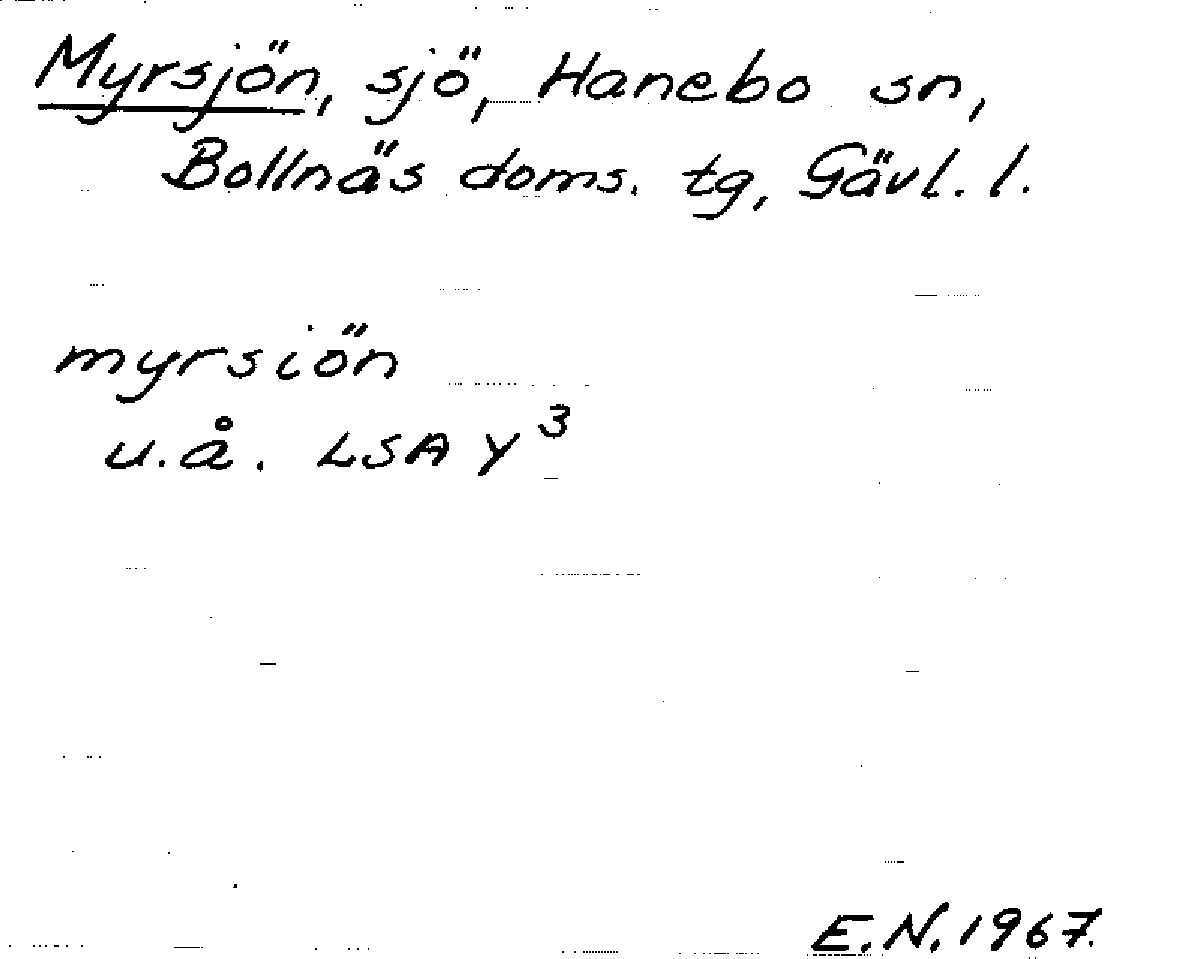 Myrsjön, sjö, Hanebo sn,
Bollnäs doms. tg, Gävl. l.
myrsiön
u.å. LSA Y³
E.N. 1967.